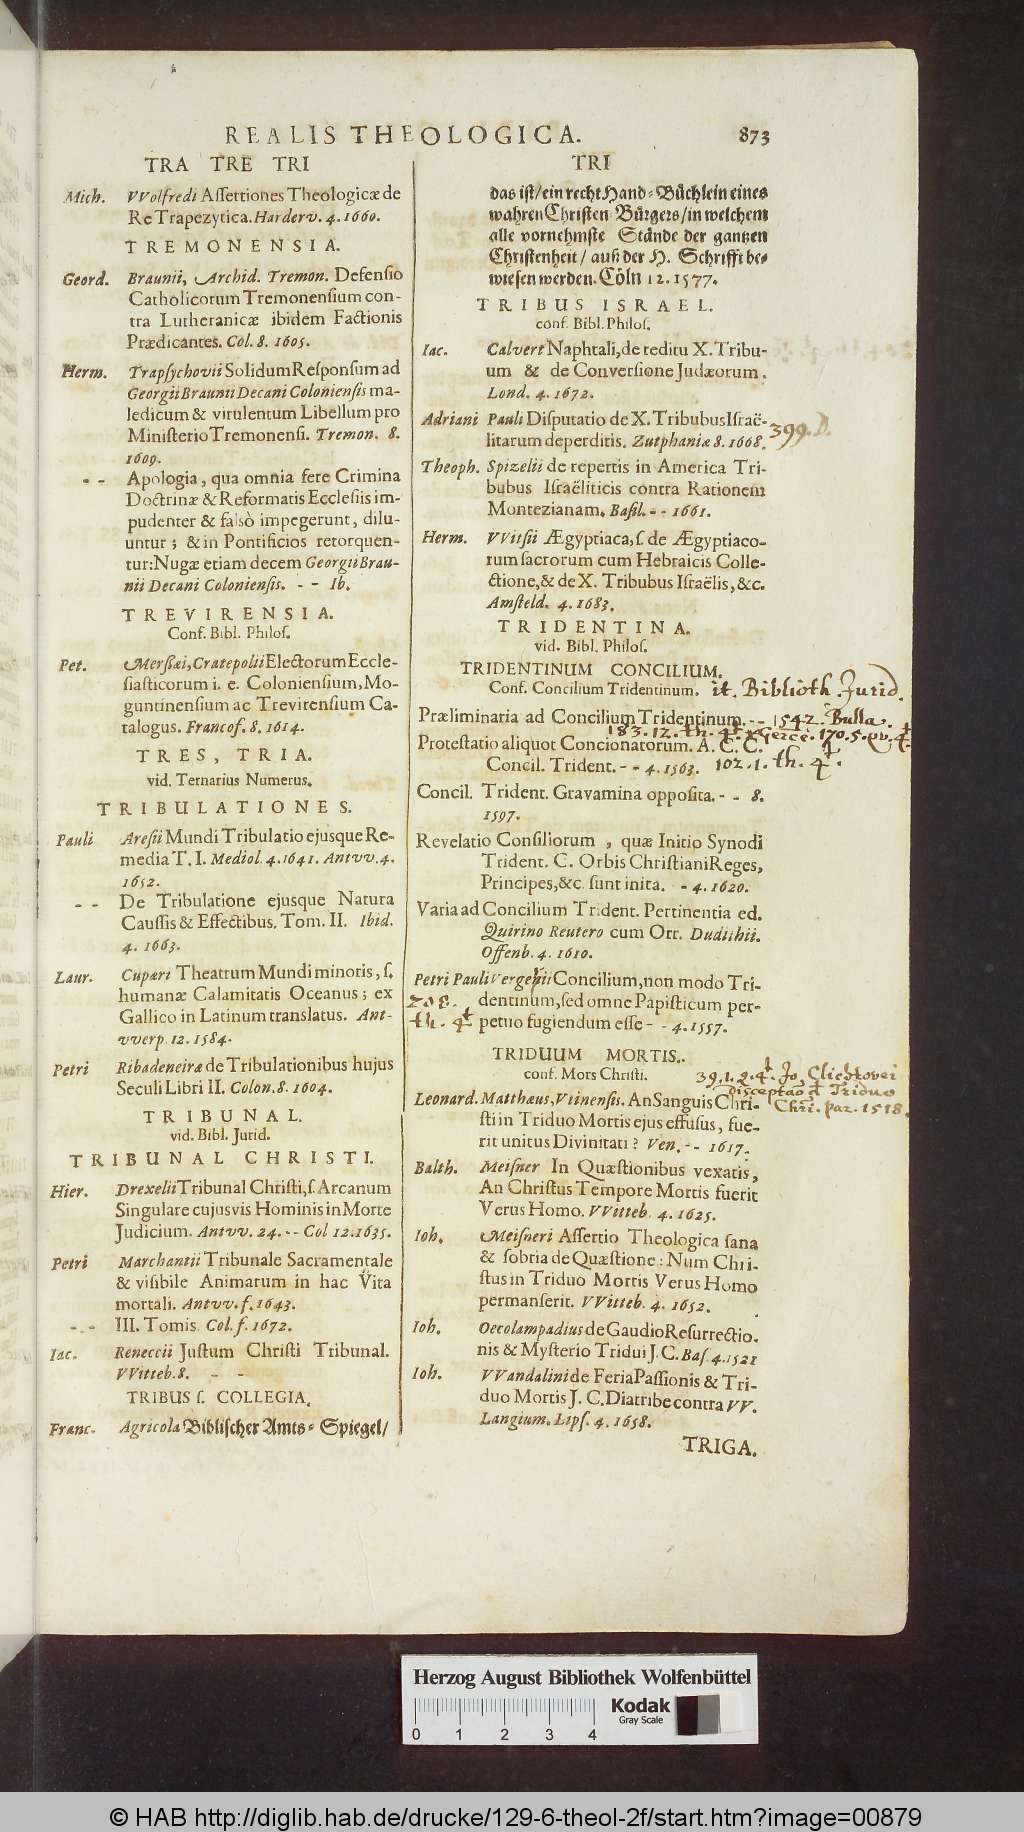 REALIS THEOLOGICA. 873
TRA TRE TRI
Mich. VVolfredi Aſſertiones Theologicæ de
Re Trapezytica. Harderv. 4. 1660.
TREMONENSIA.
Geord. Braunii, Archid. Tremon. Defenſio
Catholicorum Tremonenſium con-
tra Lutheranicæ ibidem Factionis
Prædicantes. Col. 8. 1605.
Herm. Trapſychovii Solidum Reſponſum ad
Georgii Braunii Decani Colonienſis ma-
ledicum & virulentum Libellum pro
Miniſterio Tremonenſi. Tremon. 8.
1609.
- - Apologia, qua omnia fere Crimina
Doctrinæ & Reformatis Eccleſiis im-
pudenter & falsò impegerunt, dilu-
untur; & in Pontificios retorquen-
tur: Nugæ etiam decem Georgii Brau-
nii Decani Colonienſis. - - Ib.
TREVIRENSIA.
Conf. Bibl. Philoſ.
Pet. Merſſæi, Cratepolii Electorum Eccle-
ſiaſticorum i. e. Colonienſium, Mo-
guntinenſium ac Trevirenſium Ca-
talogus. Francof. 8. 1614.
TRES, TRIA.
vid. Ternarius Numerus.
TRIBULATIONES.
Pauli Areſii Mundi Tribulatio ejusque Re-
media T. I. Mediol. 4. 1641. Antvv. 4.
1652.
- - De Tribulatione ejusque Natura
Cauſſis & Effectibus, Tom. II. Ibid.
4. 1663.
Laur. Cupæri Theatrum Mundi minoris, ſ.
humanæ Calamitatis Oceanus; ex
Gallico in Latinum translatus. Ant-
vverp. 12. 1584.
Petri Ribadeneiræ de Tribulationibus hujus
Seculi Libri II. Colon. 8. 1604.
TRIBUNAL.
vid. Bibl. Jurid.
TRIBUNAL CHRISTI.
Hier. Drexelii Tribunal Chriſti, ſ. Arcanum
Singulare cujusvis Hominis in Morte
Judicium. Antvv. 24. - - Col 12. 1635.
Petri Marchantii Tribunale Sacramentale
& viſibile Animarum in hac Vita
mortali. Antvv. f. 1643.
- - III. Tomis. Col. f. 1672.
Iac. Reneccii Juſtum Chriſti Tribunal.
VVitteb. 8. - -
TRIBUS ſ. COLLEGIA.
Franc. Agricola Bibliſcher Amts-Spiegel/
TRI
das iſt/ ein recht Hand-Büchlein eines
wahren Chriſten Bürgers/ in welchem
alle vornehmſte Stände der gantzen
Chriſtenheit/ auß der H. Schrifft be-
wieſen werden. Cöln 12. 1577.
TRIBUS ISRAEL.
conf. Bibl. Philoſ.
Iac. Calvert Naphtali, de reditu X. Tribu-
um & de Converſione Judæorum.
Lond. 4. 1672.
Adriani Pauli Diſputatio de X. Tribubus Iſraë-
litarum deperditis. Zutphaniæ 8. 1668. 399. D.
Theoph. Spizelii de repertis in America Tri-
bubus Iſraëliticis contra Rationem
Montezianam. Baſil. - - 1661.
Herm. VVitſii Ægyptiaca, ſ. de Ægyptiaco-
rum ſacrorum cum Hebraicis Colle-
ctione, & de X. Tribubus Iſraëlis, &c.
Amſteld. 4. 1683.
TRIDENTINA.
vid. Bibl. Philoſ.
TRIDENTINUM CONCILIUM.
Conf. Concilium Tridentinum. it. Biblioth. Jurid.
Præliminaria ad Concilium Tridentinum. - - 1542. Bulla.
183. 12. th. 4t 170. 5. 4t
Proteſtatio aliquot Concionatorum. A. C. C.
Concil. Trident. - - 4. 1563. 102. 1. th. 4t.
Concil. Trident. Gravamina oppoſita. - - 8.
1597.
Revelatio Conſiliorum, quæ Initio Synodi
Trident. C. Orbis Chriſtiani Reges,
Principes, &c. ſunt inita. - 4. 1620.
Varia ad Concilium Trident. Pertinentia ed.
Quirino Reutero cum Orr. Dudithii.
Offenb. 4. 1610.
Petri Pauli Vergerii Concilium, non modo Tri-
208. dentinum, ſed omne Papiſticum per-
th. 4t petuo fugiendum eſſe - - 4. 1557.
TRIDUUM MORTIS.
conf. Mors Chriſti. 39. 1. 2. 4t. Jo. Clichtovei
disceptao Triduo
Leonard. Matthæus, Viinenſis. An Sanguis Chri- Chri. par. 1518.
ſti in Triduo Mortis ejus effuſus, fue-
rit unitus Divinitati? Ven. - - 1617.
Balth. Meiſner In Quæſtionibus vexatis,
An Chriſtus Tempore Mortis fuerit
Verus Homo. VVitteb. 4. 1625.
Ioh. Meiſneri Aſſertio Theologica ſana
& ſobria de Quæſtione: Num Chri-
ſtus in Triduo Mortis Verus Homo
permanſerit. VVitteb. 4. 1652.
Ioh. Oecolampadius de Gaudio Reſurrectio-
nis & Myſterio Tridui J. C. Baſ. 4. 1521
Ioh. VVandalini de Feria Paſſionis & Tri-
duo Mortis J. C. Diatribe contra VV.
Langium. Lipſ. 4. 1658.
TRIGA.
Herzog August Bibliothek Wolfenbüttel
Kodak
Gray Scale
0 1 2 3 4
© HAB http://diglib.hab.de/drucke/129-6-theol-2f/start.htm?image=00879